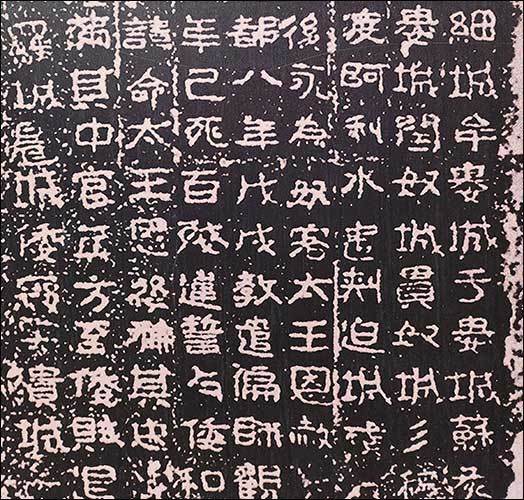 細城牟婁城于婁城蘇灰
婁城閏奴城貫奴城彡穰
渡阿利水遣刺迫城
後永為奴客太王恩赦
都八年戊戌教遣偏師觀
年己亥百殘違誓与倭和
請命太王恩後稱其忠
滿其中官兵方至倭賊退
羅城城倭潰城